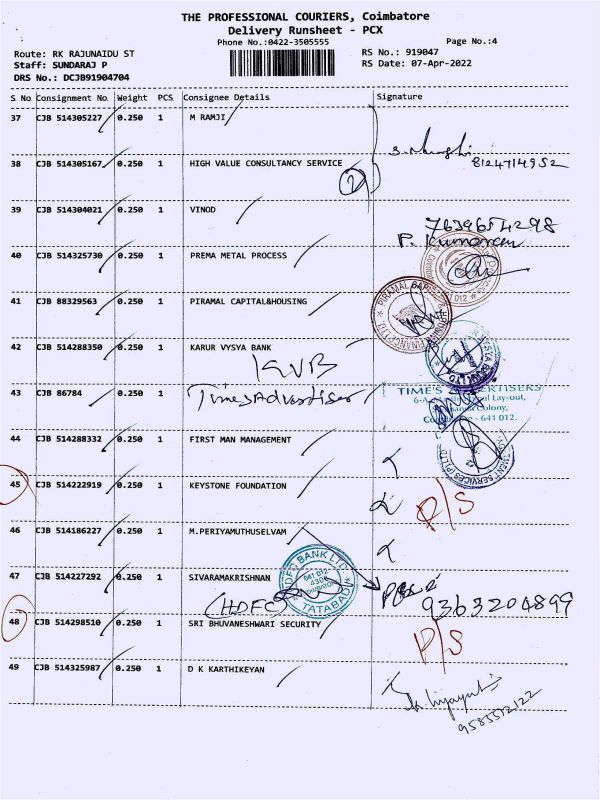 THE PROFESSIONAL COURIERS, Coimbatore
Delivery Runsheet - PCX
Phone No.:0422-3505555
Page No.:4
Route: RK RAJUNAIDU ST
RS No.: 919047
Staff: SUNDARAJ P
RS Date: 07-Apr-2022
DRS No.: DCJB91904704
S No Consignment No. Weight PCS Consignee Details Signature
37 CJB 514305227 0.250 1 M RAMJI
8124714952
38 CJB 514305167 0.250 1 HIGH VALUE CONSULTANCY SERVICE
2
39 CJB 514304021 0.250 1 VINOD
7639654298
P. Kumaran
40 CJB 514325730 0.250 1 PREMA METAL PROCESS
41 CJB 88329563 0.250 1 PIRAMAL CAPITAL&HOUSING
42 CJB 514288350 0.250 1 KARUR VYSYA BANK
KVB
43 CJB 86784 0.250 1 Times Advertiser
TIME'S ADVERTISERS
Lay-out,
Colony,
641 012.
44 CJB 514288332 0.250 1 FIRST MAN MANAGEMENT
45 CJB 514222919 0.250 1 KEYSTONE FOUNDATION
P/S
46 CJB 514186227 0.250 1 M.PERIYAMUTHUSELVAM
HDFC BANK LTD
641 012
TATABAD
47 CJB 514227292 0.250 1 SIVARAMAKRISHNAN
(HDFC)
9363204899
48 CJB 514298510 0.250 1 SRI BHUVANESHWARI SECURITY
P/S
49 CJB 514325987 0.250 1 D K KARTHIKEYAN